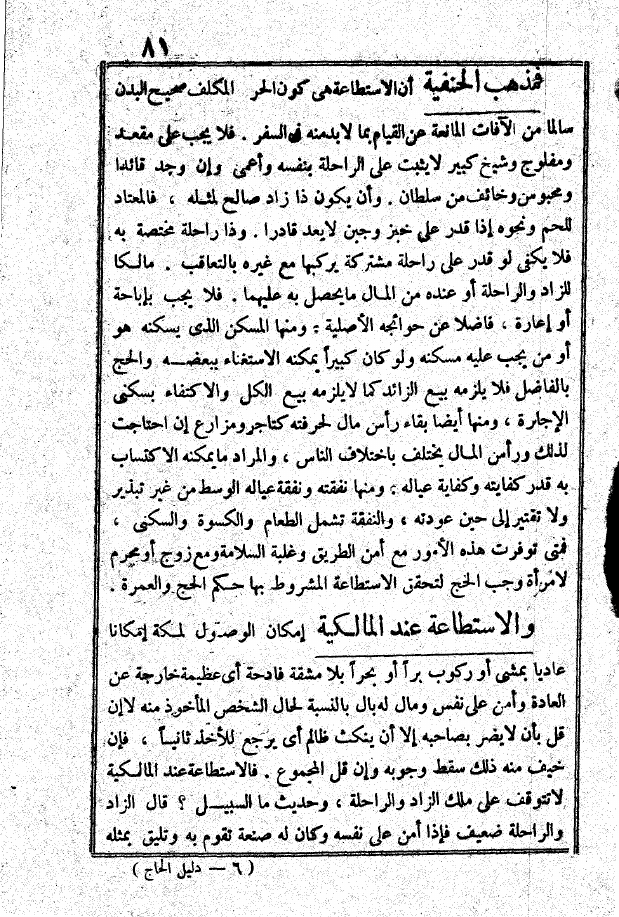 ٨١
فمذهب الحنفية أن الاستطاعة هى كون الحر المكلف صحيح البدن
سالما من الآفات المانعة عن القيام بما لابد منه فى السفر . فلا يجب على مقعد
ومفلوج وشيخ كبير لايثبت على الراحلة بنفسه وأعمى وإن وجد قائدا
ومحبوس وخائف من سلطان . وأن يكون ذا زاد صالح لمثله ، فالمعتاد
للحم ونحوه إذا قدر على خبز وجبن لايعد قادرا . وذا راحلة مختصة به
فلا يكفى لو قدر على راحلة مشتركة يركبها مع غيره بالتعاقب . مالكا
للزاد والراحلة أو عنده من المال مايحصل به عليهما . فلا يجب بإباحة
أو إعارة ، فاضلا عن حوائجه الأصلية : ومنها المسكن الذى يسكنه هو
أو من يجب عليه مسكنه ولو كان كبيراً يمكنه الاستغناء ببعضه والحج
بالفاضل فلا يلزمه بيع الزائد كما لايلزمه بيع الكل والاكتفاء بسكنى
الإجارة ، ومنها أيضا بقاء رأس مال لحرفته كتاجر ومزارع إن احتاجت
لذلك ورأس المال يختلف باختلاف الناس ، والمراد مايمكنه الاكتساب
به قدر كفايته وكفاية عياله : ومنها نفقته ونفقة عياله الوسط من غير تبذير
ولا تقتير إلى حين عودته ، والنفقة تشمل الطعام والكسوة والسكنى ،
فمتى توفرت هذه الأمور مع أمن الطريق وغلبة السلامة ومع زوج أو محرم
لامرأة وجب الحج لتحقق الاستطاعة المشروط بها حكم الحج والعمرة .
والاستطاعة عند المالكية إمكان الوصول لمكة إمكانا
عاديا بمشى أو ركوب براً أو بحراً بلا مشقة فادحة أى عظيمة خارجة عن
العادة وأمن على نفس ومال له بال بالنسبة لحال الشخص المأخوذ منه لا إن
قل بأن لايضر بصاحبه إلا أن ينكث ظالم أى يرجع للأخذ ثانياً ، فإن
خيف منه ذلك سقط وجوبه وإن قل المجموع . فالاستطاعة عند المالكية
لاتتوقف على ملك الزاد والراحلة ، وحديث ما السبيل ؟ قال الزاد
والراحلة ضعيف فإذا أمن على نفسه وكان له صنعة تقوم به وتليق بمثله
( ٦ — دليل الحاج )